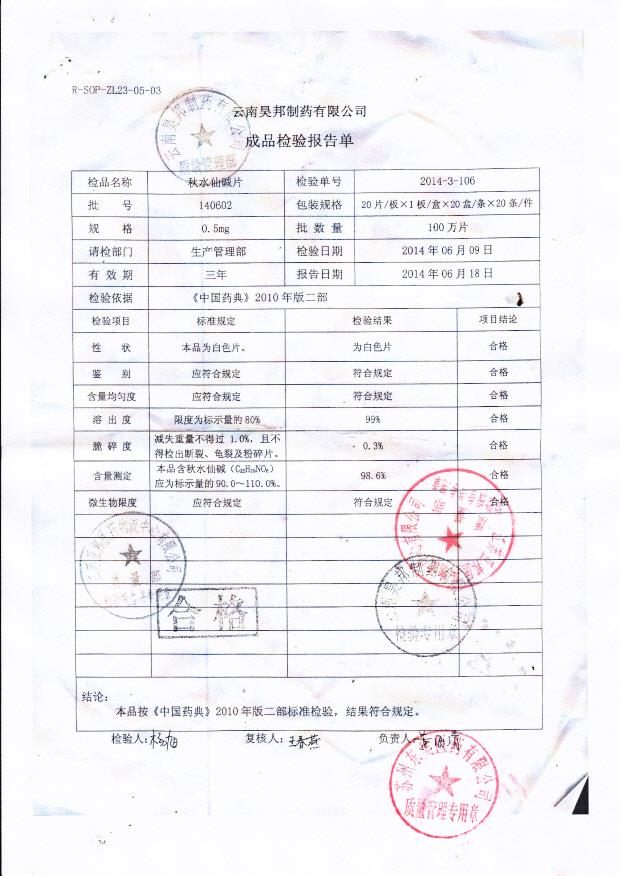 R-SOP-ZL23-05-03
云南昊邦制药有限公司
成品检验报告单
检品名称 秋水仙碱片 检验单号 2014-3-106
批 号 140602 包装规格 20片/板×1板/盒×20盒/条×20条/件
规 格 0.5mg 批数量 100万片
请检部门 生产管理部 检验日期 2014年06月09日
有效期 三年 报告日期 2014年06月18日
检验依据 《中国药典》2010年版二部
检验项目 标准规定 检验结果 项目结论
性 状 本品为白色片。 为白色片 合格
鉴 别 应符合规定 符合规定 合格
含量均匀度 应符合规定 符合规定 合格
溶出度 限度为标示量的80% 99% 合格
脆碎度 减失重量不得过1.0%，且不
得检出断裂、龟裂及粉碎片。 0.3% 合格
含量测定 本品含秋水仙碱（C₂₂H₂₅NO₆）
应为标示量的90.0～110.0%。 98.6% 合格
微生物限度 应符合规定 符合规定 合格
云南昊邦制药有限公司
质量管理部
合格
检验专用章
结论：
本品按《中国药典》2010年版二部标准检验，结果符合规定。
检验人： 复核人：王春燕 负责人
苏州东 医药有限公司
质量管理专用章